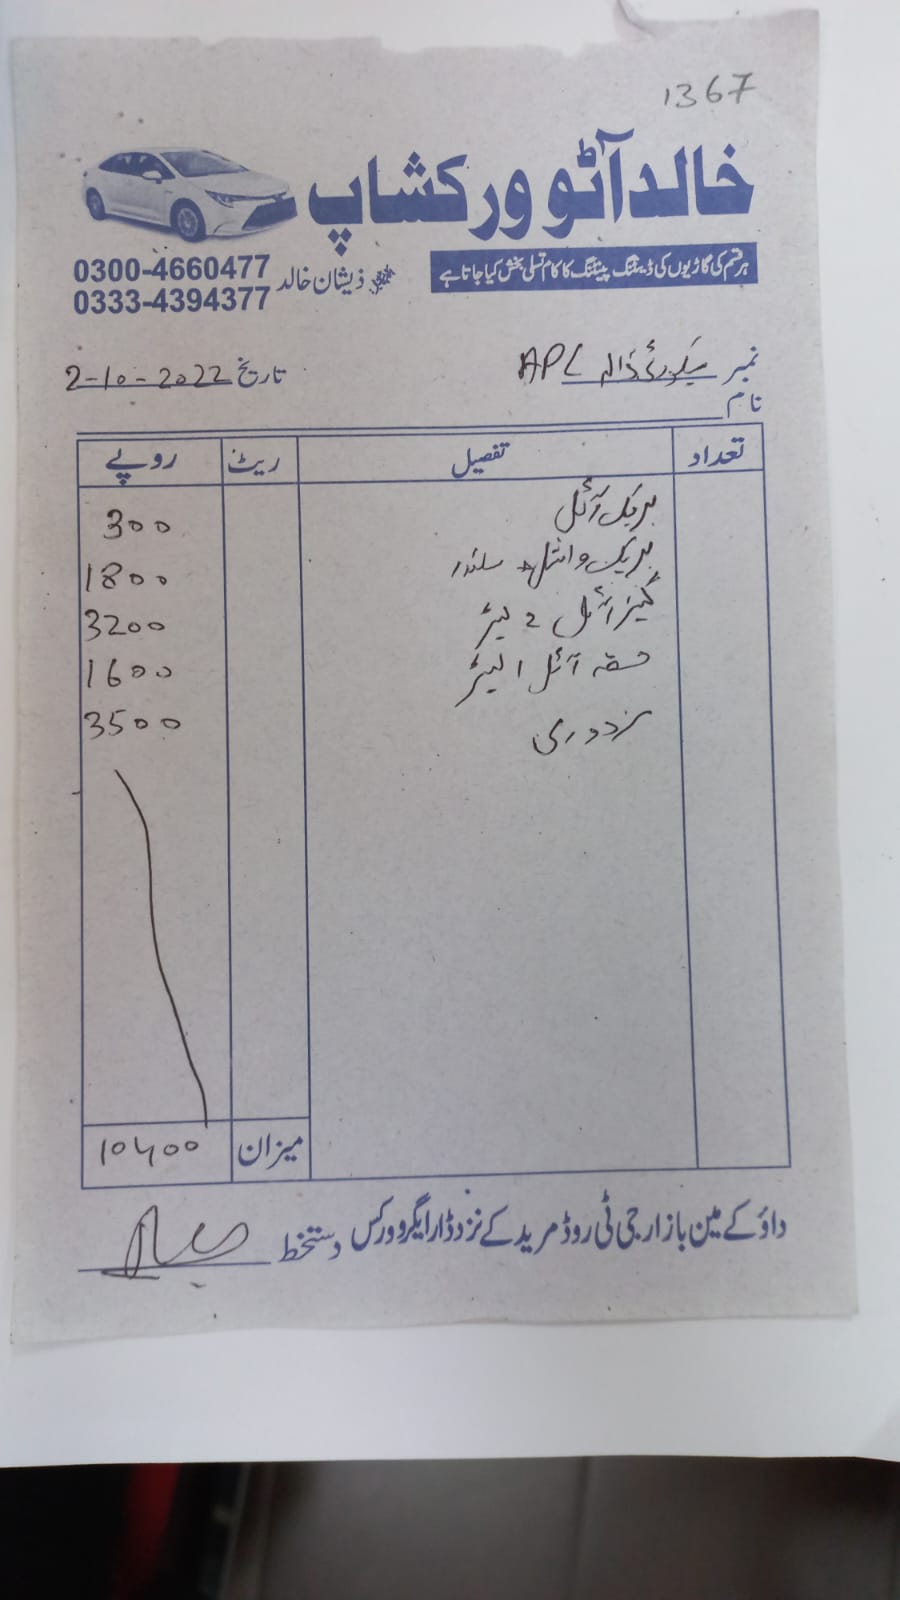 1367
خالد آٹو ورکشاپ
ہر قسم کی گاڑیوں کی ڈینٹنگ پینٹنگ کا کام تسلی بخش کیا جاتا ہے
ذیشان خالد
0300-4660477
0333-4394377
نمبر سیکورٹی ڈالہ APL تاریخ 2-10-2022
نام
تعداد تفصیل ریٹ روپے
بریک آئل 300
بریک و سلنڈر 1800
گیئر آئل 2 لیٹر 3200
آئل 1 لیٹر 1600
مزدوری 3500
میزان 10400
داؤکے مین بازار جی ٹی روڈ مریدکے نزد ڈار ایگرو ورکس دستخط